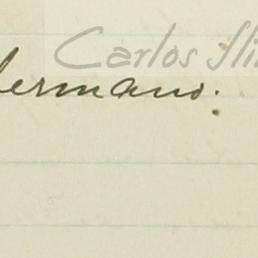 Carlos
hermano.